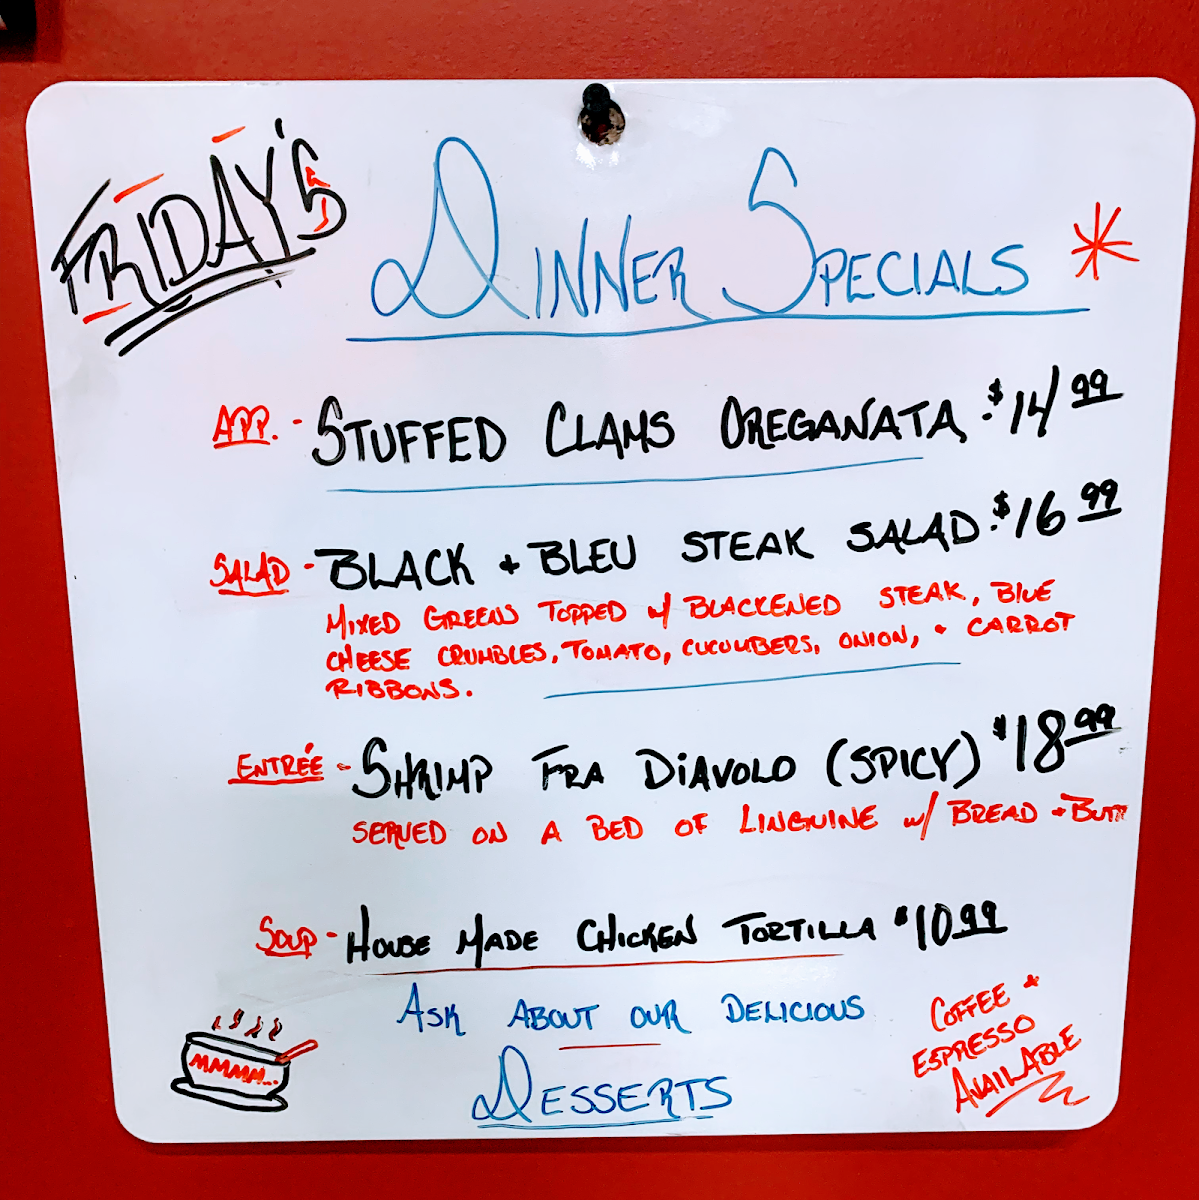 FRIDAY'S
DINNER SPECIALS *
APP. - STUFFED CLAMS OREGANATA $14.99
SALAD - BLACK + BLEU STEAK SALAD $16.99
MIXED GREENS TOPPED w/ BLACKENED STEAK, BLUE
CHEESE CRUMBLES, TOMATO, CUCUMBERS, ONION, + CARROT
RIBBONS.
ENTRÉE - SHRIMP FRA DIAVOLO (SPICY) $18.99
SERVED ON A BED OF LINGUINE w/ BREAD + BUTT
SOUP - HOUSE MADE CHICKEN TORTILLA $10.99
ASK ABOUT OUR DELICIOUS
DESSERTS
COFFEE +
ESPRESSO
AVAILABLE
MMMM...